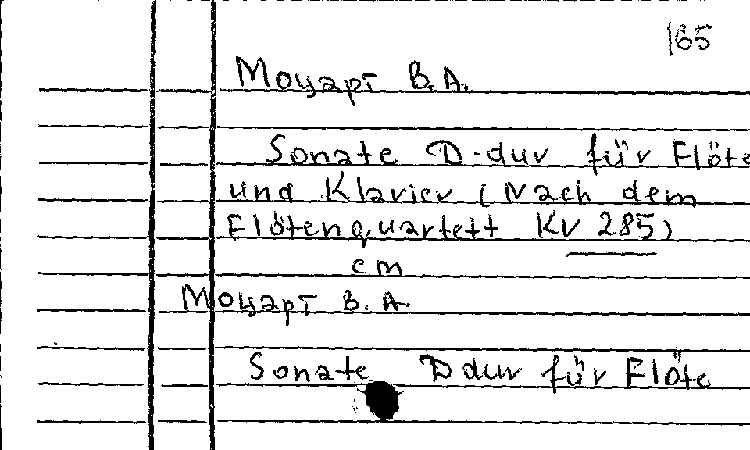 165
Моцарт В.А.
Sonate D-dur für Flöte
und Klavier (Nach dem
Flötenquartett KV 285)
см
Моцарт В.А.
Sonate D dur für Flöte